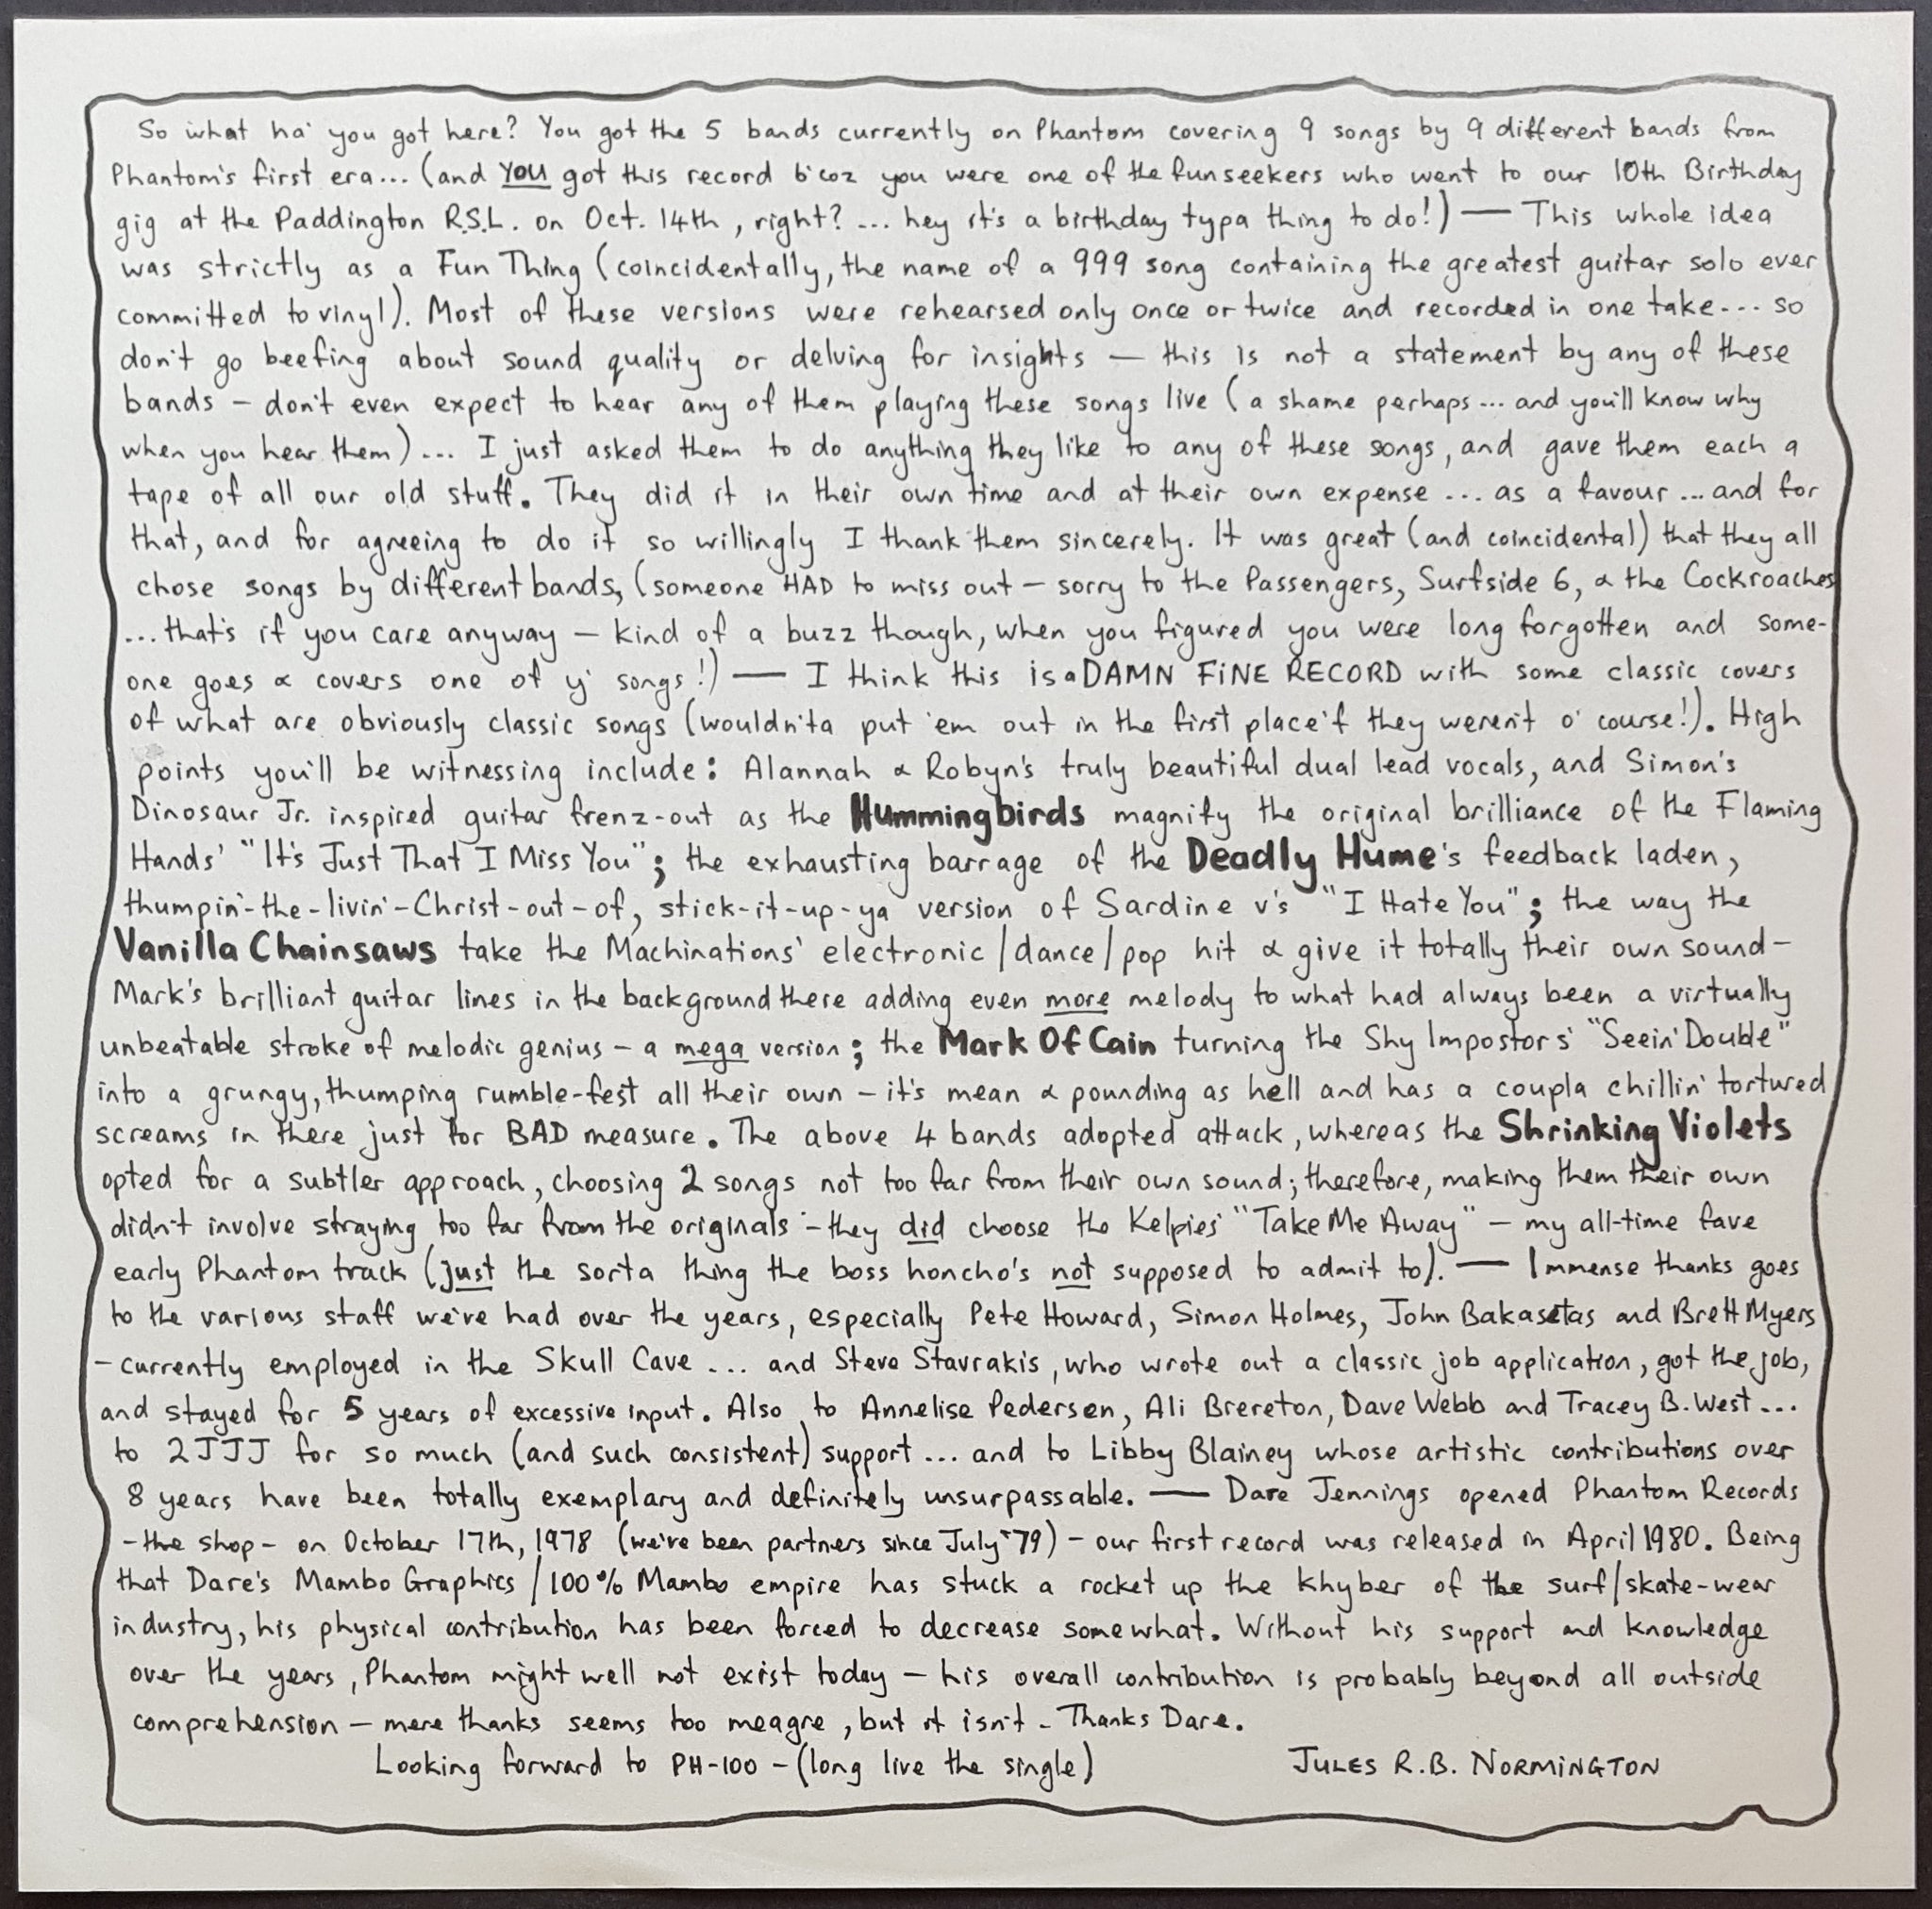 So what ha' you got here? You got the 5 bands currently on Phantom covering 9 songs by 9 different bands from
Phantom's first era... (and YOU got this record b'coz you were one of the funseekers who went to our 10th Birthday
gig at the Paddington R.S.L. on Oct. 14th, right? ... hey it's a birthday typa thing to do!) — This whole idea
was strictly as a Fun Thing (coincidentally, the name of a 999 song containing the greatest guitar solo ever
committed to vinyl). Most of these versions were rehearsed only once or twice and recorded in one take... so
don't go beefing about sound quality or delving for insights — this is not a statement by any of these
bands - don't even expect to hear any of them playing these songs live (a shame perhaps... and you'll know why
when you hear them)... I just asked them to do anything they like to any of these songs, and gave them each a
tape of all our old stuff. They did it in their own time and at their own expense ... as a favour ... and for
that, and for agreeing to do it so willingly I thank them sincerely. It was great (and coincidental) that they all
chose songs by different bands, (someone HAD to miss out - sorry to the Passengers, Surfside 6, & the Cockroaches
...that's if you care anyway - kind of a buzz though, when you figured you were long forgotten and some-
one goes & covers one of y' songs!) — I think this is a DAMN FiNE RECORD with some classic covers
of what are obviously classic songs (wouldn'ta put 'em out in the first place 'f they weren't o' course!). High
points you'll be witnessing include: Alannah & Robyn's truly beautiful dual lead vocals, and Simon's
Dinosaur Jr. inspired guitar frenz-out as the Hummingbirds magnify the original brilliance of the Flaming
Hands' "It's Just That I Miss You"; the exhausting barrage of the Deadly Hume's feedback laden,
thumpin'-the-livin'-Christ-out-of, stick-it-up-ya version of Sardine v's "I Hate You"; the way the
Vanilla Chainsaws take the Machinations' electronic/dance/pop hit & give it totally their own sound-
Mark's brilliant guitar lines in the background there adding even more melody to what had always been a virtually
unbeatable stroke of melodic genius - a mega version; the Mark Of Cain turning the Shy Impostors' "Seein' Double"
into a grungy, thumping rumble-fest all their own - it's mean & pounding as hell and has a coupla chillin' tortured
screams in there just for BAD measure. The above 4 bands adopted attack, whereas the Shrinking Violets
opted for a subtler approach, choosing 2 songs not too far from their own sound; therefore, making them their own
didn't involve straying too far from the originals - they did choose the Kelpies' "Take Me Away" - my all-time fave
early Phantom track (just the sorta thing the boss honcho's not supposed to admit to). — Immense thanks goes
to the various staff we've had over the years, especially Pete Howard, Simon Holmes, John Bakasetas and Brett Myers
- currently employed in the Skull Cave ... and Steve Stavrakis, who wrote out a classic job application, got the job,
and stayed for 5 years of excessive input. Also to Annelise Pedersen, Ali Brereton, Dave Webb and Tracey B. West...
to 2JJJ for so much (and such consistent) support... and to Libby Blainey whose artistic contributions over
8 years have been totally exemplary and definitely unsurpassable. — Dare Jennings opened Phantom Records
- the shop - on October 17th, 1978 (we've been partners since July '79) - our first record was released in April 1980. Being
that Dare's Mambo Graphics/100% Mambo empire has stuck a rocket up the khyber of the surf/skate-wear
industry, his physical contribution has been forced to decrease somewhat. Without his support and knowledge
over the years, Phantom might well not exist today - his overall contribution is probably beyond all outside
comprehension - mere thanks seems too meagre, but it isn't - Thanks Dare.
Looking forward to PH-100 - (long live the single) JULES R.B. NORMINGTON